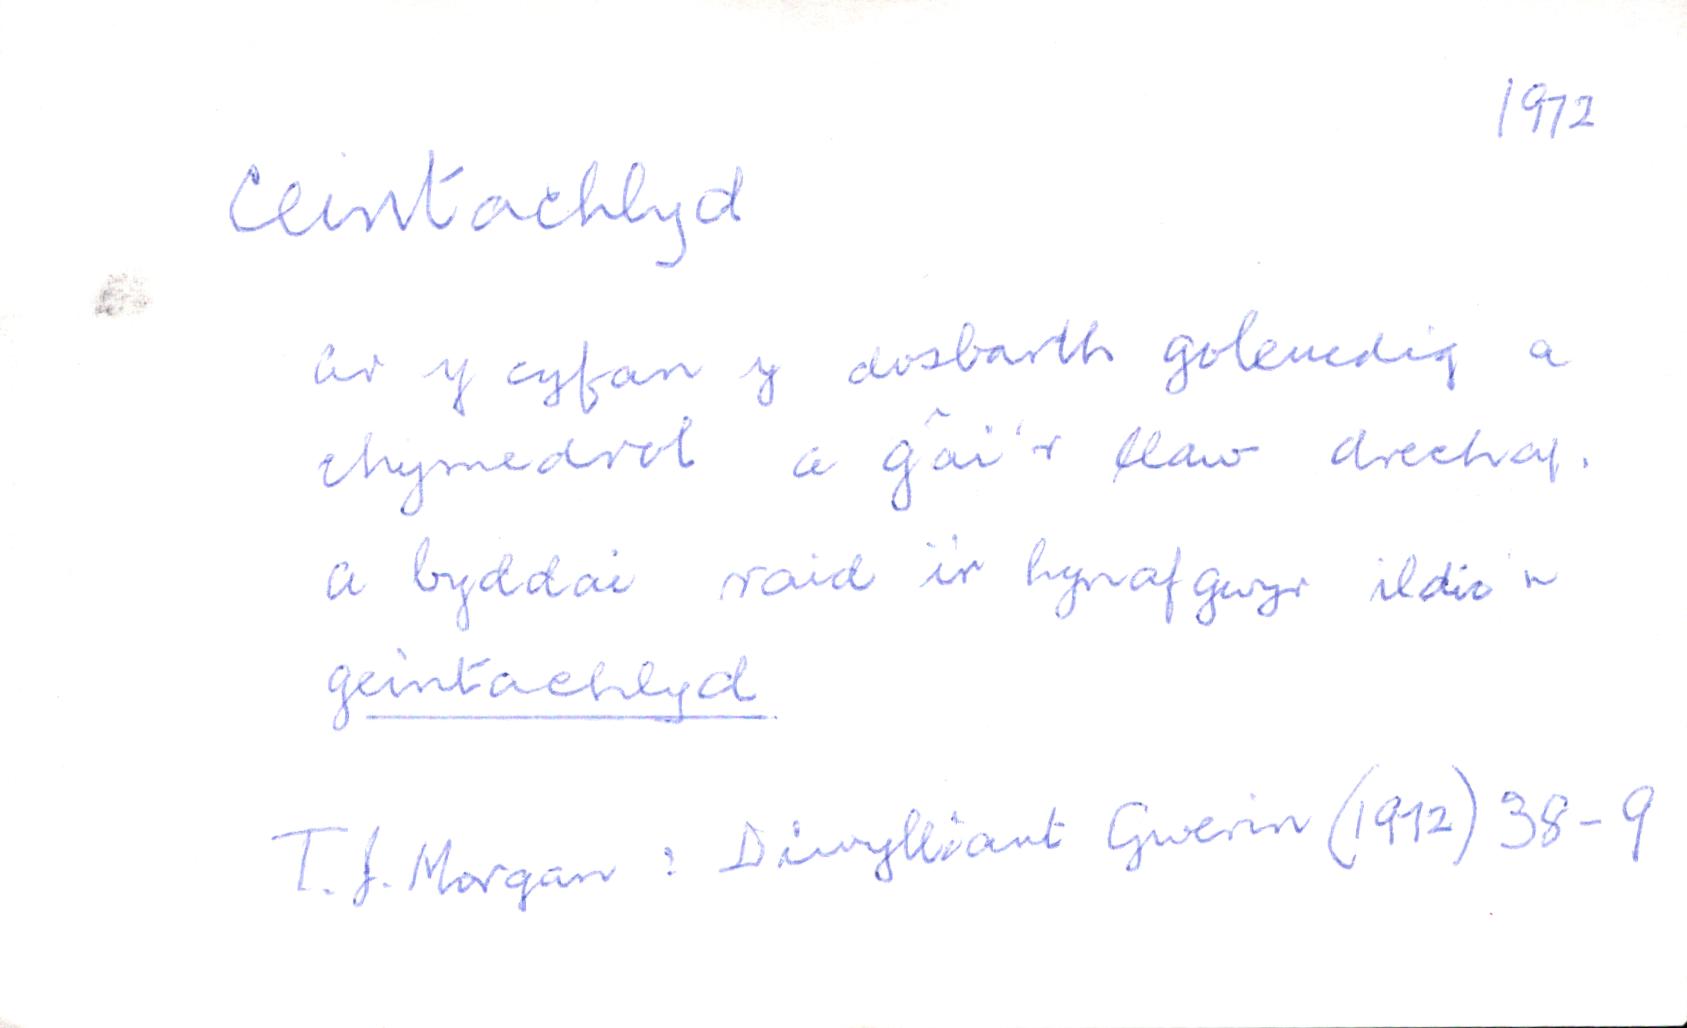 1972
Ceintachlyd
ar y cyfan y dosbarth goleuedig a
chymedrol a gâi'r llaw drechaf.
a byddai raid i'r hynafgwyr ildio'n
geintachlyd
T. J. Morgan : Diwylliant Gwerin (1972) 38-9